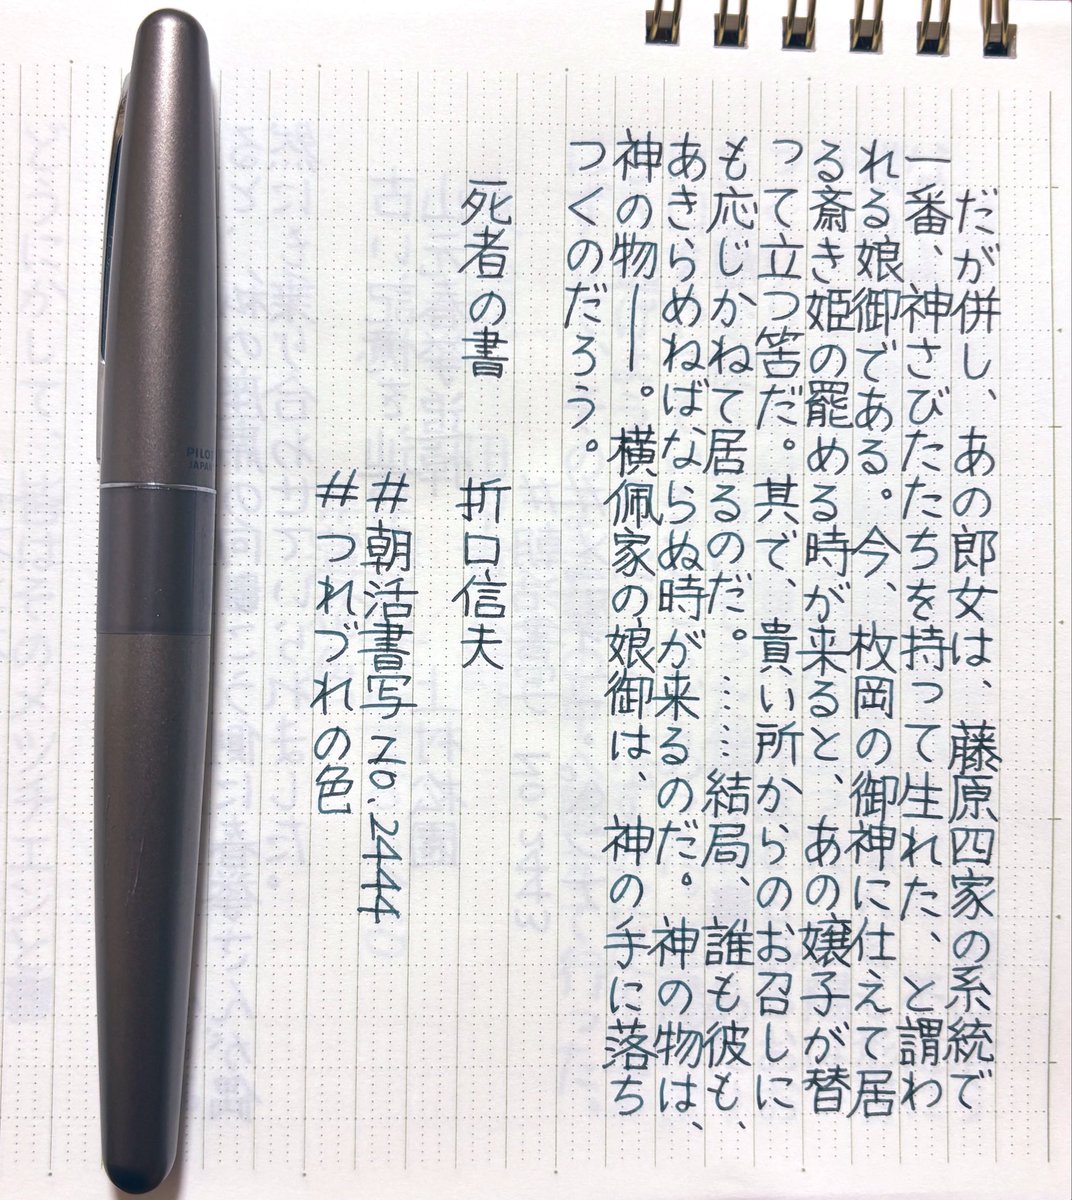 だが併し、あの郎女は、藤原四家の系統で
一番、神さびたたちを持って生れた、と謂わ
れる娘御である。今、枚岡の御神に仕えて居
る斎き姫の罷める時が来ると、あの嬢子が替
って立つ筈だ。其で、貴い所からのお召しに
も応じかねて居るのだ。……結局、誰も彼も、
あきらめねばならぬ時が来るのだ。神の物は、
神の物――。横佩家の娘御は、神の手に落ち
つくのだろう。
死者の書 折口信夫
#朝活書写 No.2444
#つれづれの色
PILOT
JAPAN